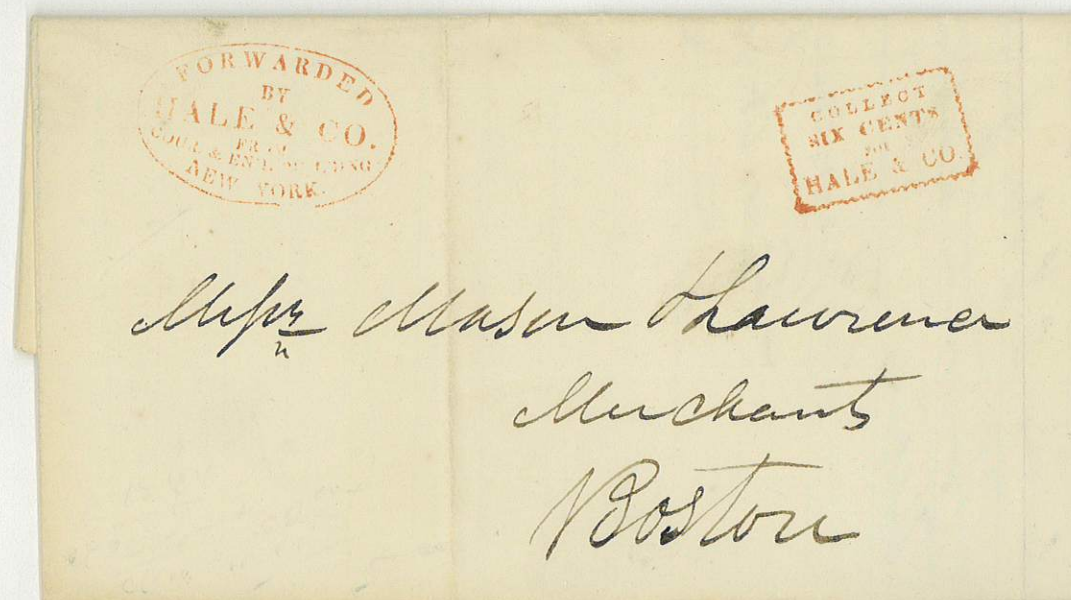 FORWARDED
BY
HALE & CO.
FROM
COUR. & ENQ. BUILDING
NEW YORK.
COLLECT
SIX CENTS
FOR
HALE & CO.
Messrs Mason & Lawrence
Merchants
Boston